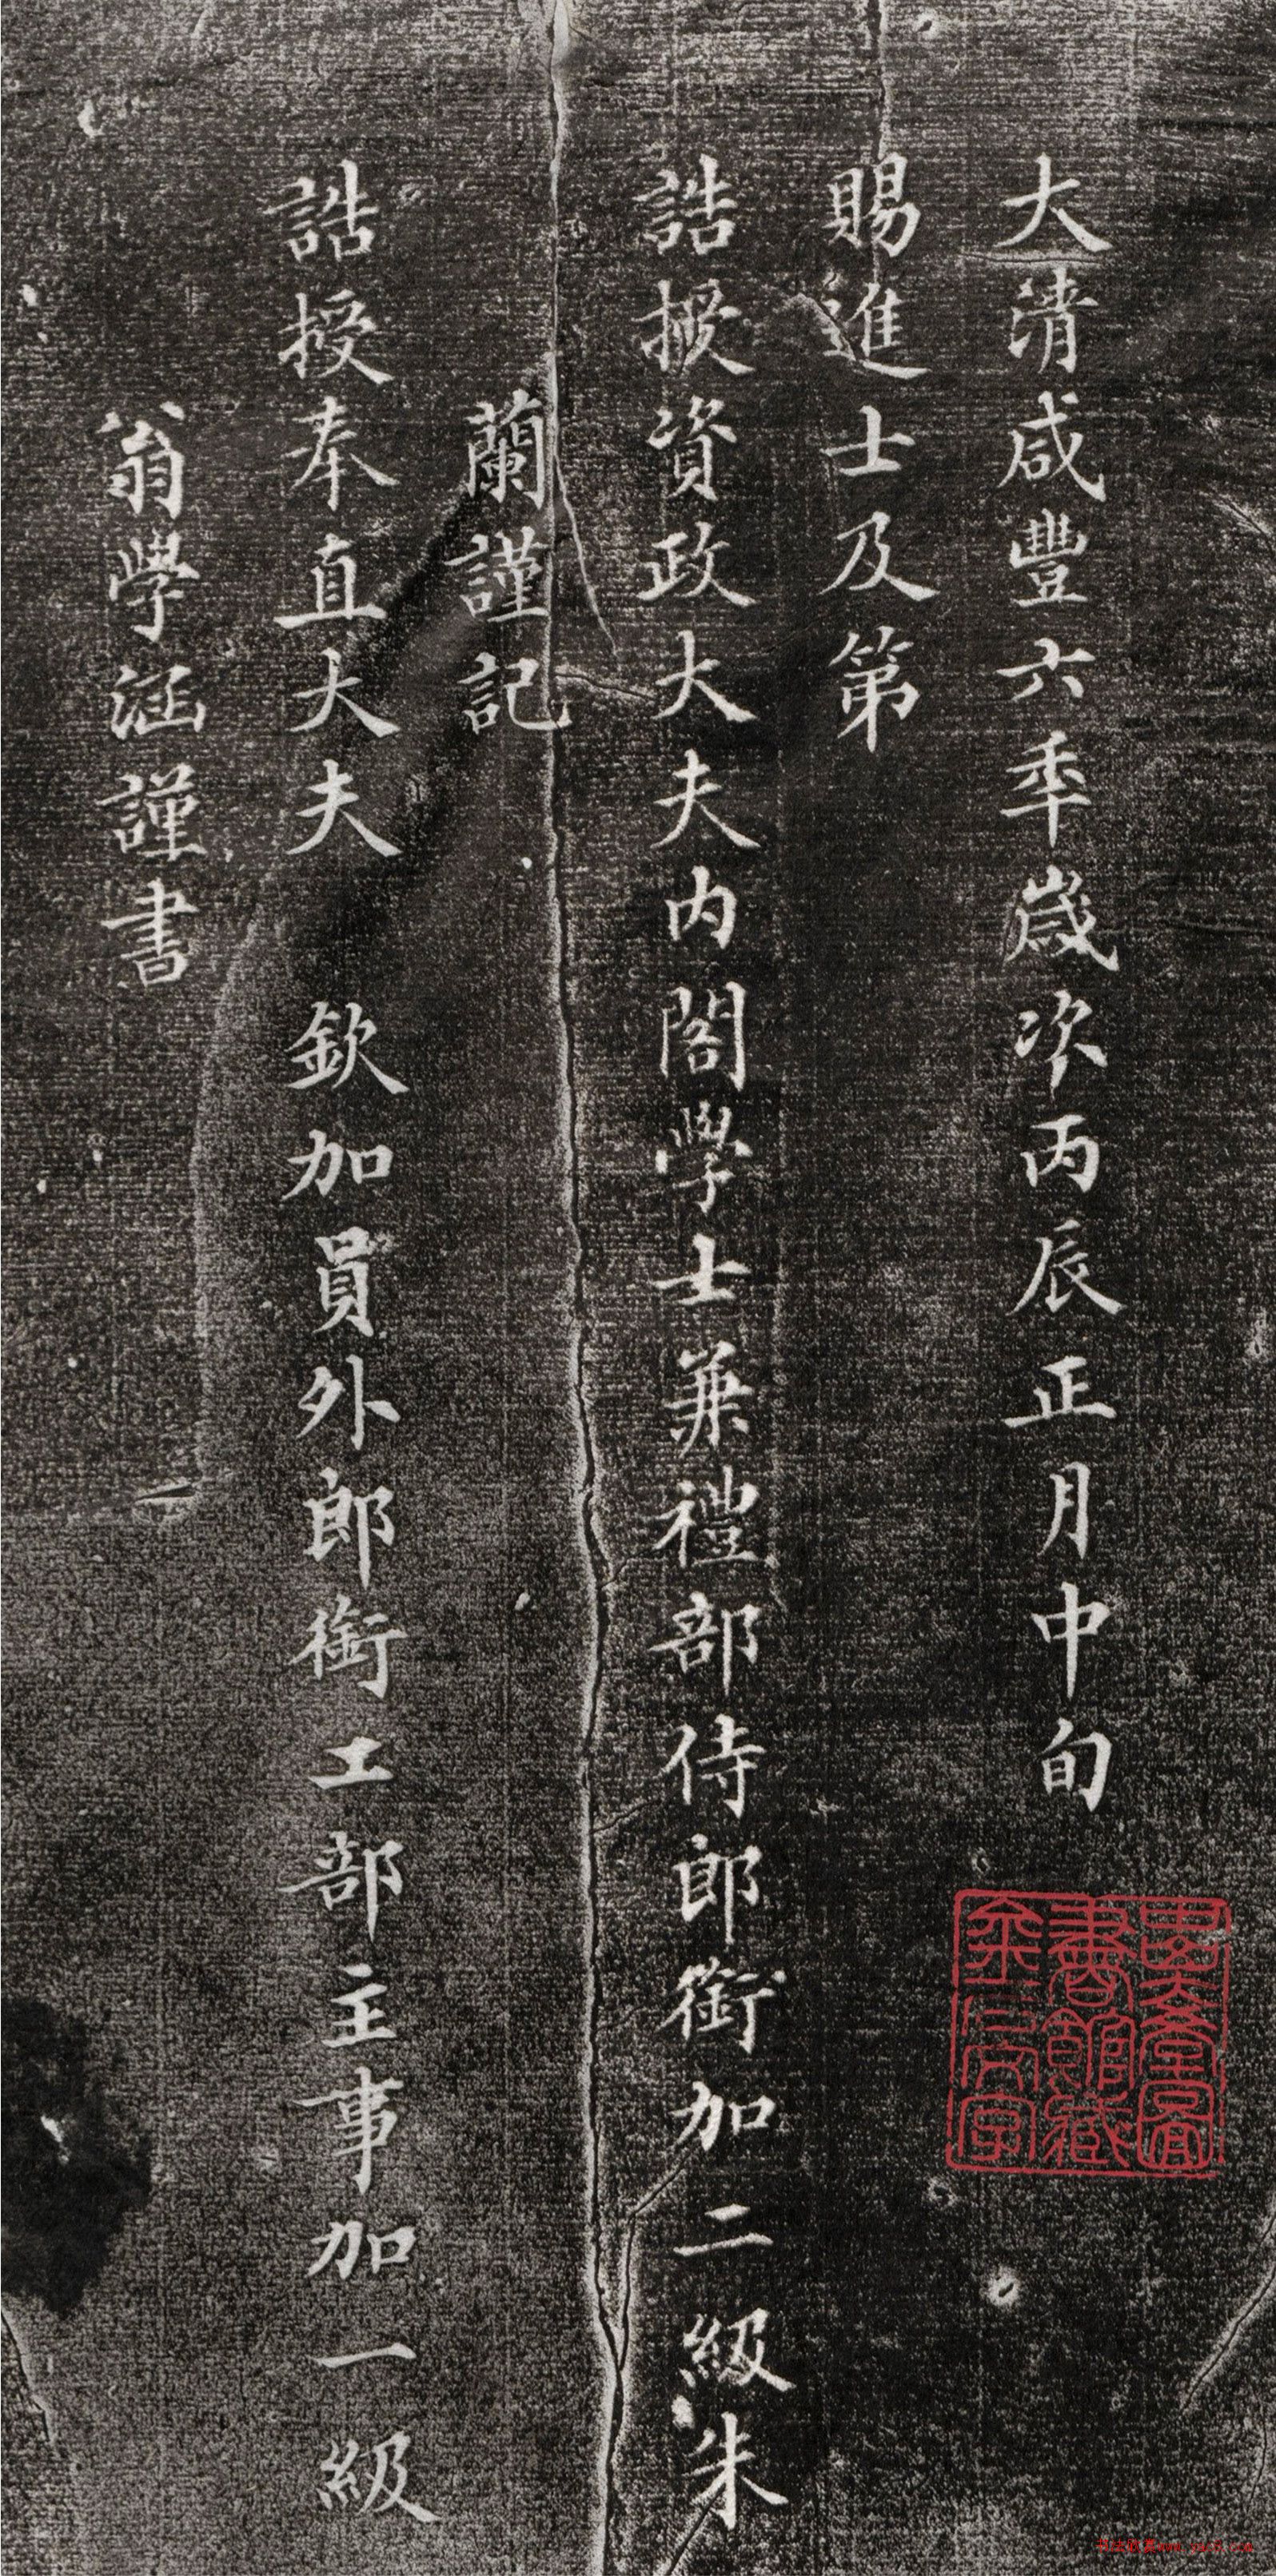 大清咸豐六年歲次丙辰正月中旬
賜進士及第
誥授資政大夫內閣學士兼禮部侍郎銜加二級朱
蘭謹記
誥授奉直大夫 欽加員外郎銜工部主事加一級
翁學涵謹書
書館藏
金石文字
www.yac8.com